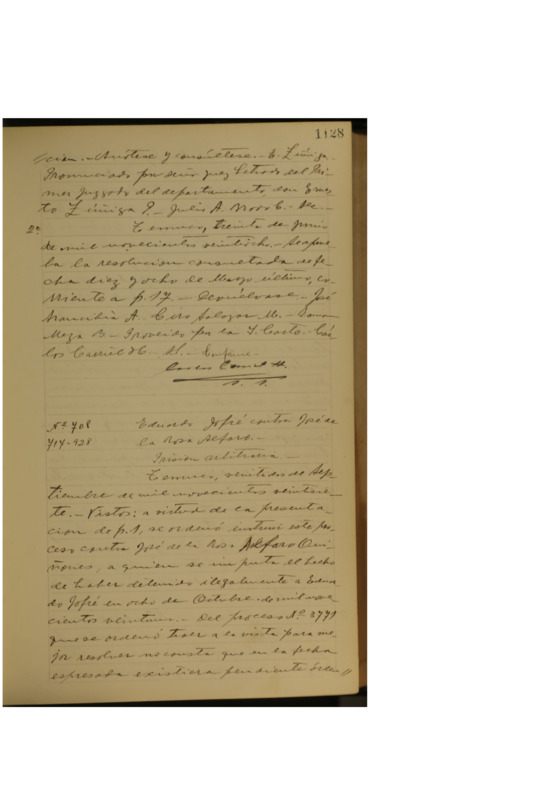 1128
cion.- Anótese y consúltese.- E. Zúñiga.-
Pronunciado por señor Juez Letrado del Pri-
mer Juzgado del departamento don Ernes-
to Zúñiga P.- Julio A.
2ª Temuco, treinta de Junio
de mil novecientos veintiocho.- Se aprue-
ba la resolucion consultada de fe-
cha diez y ocho de Marzo último, co-
rriente a f. 17.- Devuélvase.- José
A.- Ciro Salazar M.-
Meza B.- Proveido por la I. Corte.- Cár-
los
Nº 708 Eduardo Jofré contra José de
717-928 la Rosa Alfaro.-
Prision arbitraria.-
Temuco, veintidos de Sep-
tiembre de mil novecientos veintisie-
te.- Vistos: a virtud de la presenta-
cion de f. 1, se ordenó instruir este pro-
ceso contra José de la Rosa Alfaro Qui-
ñones, a quien se imputa el hecho
de haber detenido ilegalmente a Eduar-
do Jofré en ocho de Octubre de mil nove-
cientos veintiuno.- Del proceso Nº 3771
que se ordenó traer a la vista para me-
jor resolver no consta que en la fecha
espresada existiera pendiente órden //